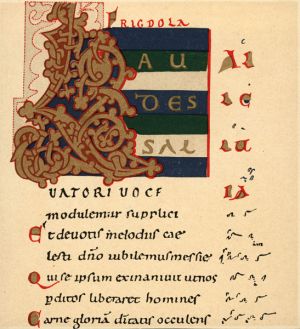 FRIGDOLA
LAU
DES
SAL
UATORI UOCE
modulemur supplici
Et deuotis melodiis cae
lesti dn̄o iubilemus messie
Qui se ipsum exinaniuit ut nos
ꝑditos liberaret homines
Carne gloriā dı̄tatis occulens